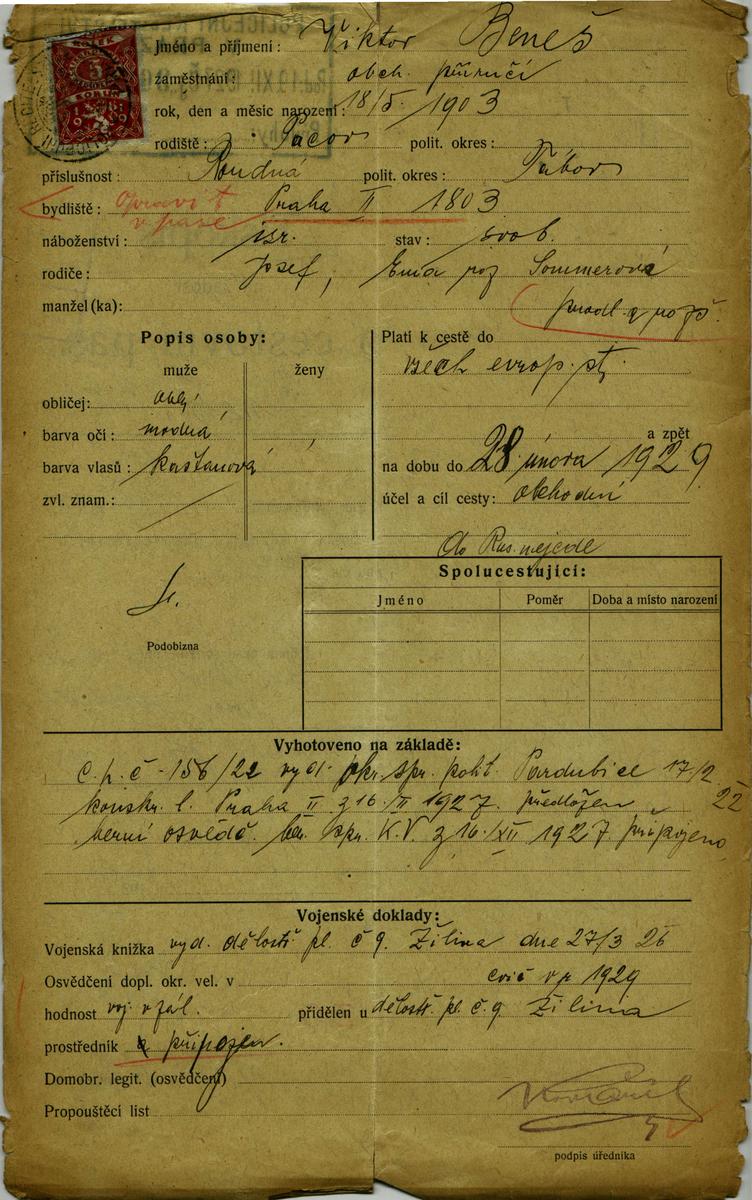 Jméno a příjmení: Viktor Beneš
zaměstnání: obch. příručí
rok, den a měsíc narození: 18/5. 1903
rodiště: Pacov polit. okres:
příslušnost: Roudná polit. okres: Tábor
bydliště: opravit v pase Praha II 1803
náboženství: isr. stav: svob.
rodiče: Josef, Ema roz Sommerová
manžel (ka):
prodl. a rozš.
Popis osoby:
muže ženy
obličej: obl.
barva očí: modrá
barva vlasů: kaštanová
zvl. znam.:
Platí k cestě do
všech evrop. st.
a zpět
na dobu do 28. února 1929
účel a cíl cesty: obchodní
do Rus. nejede
Podobizna
Spolucestující:
Jméno Poměr Doba a místo narození
Vyhotoveno na základě:
c. p. č - 156/22 vyd. okr. spr. polit. Pardubice 17/2 22
konskr. l. Praha II z 16/II 1927 předložen
berní osvědč. ber. spr. K.V. z 16./XII 1927 připojeno
Vojenské doklady:
Vojenská knížka vyd. dělostř. pl. č 9. Žilina dne 27/3 26
Osvědčení dopl. okr. vel. v cvič v r 1929
hodnost voj. v zál. přidělen u dělostř. pl. č. 9 Žilina
prostředník připojen.
Domobr. legit. (osvědčení)
Propouštěcí list
podpis úředníka